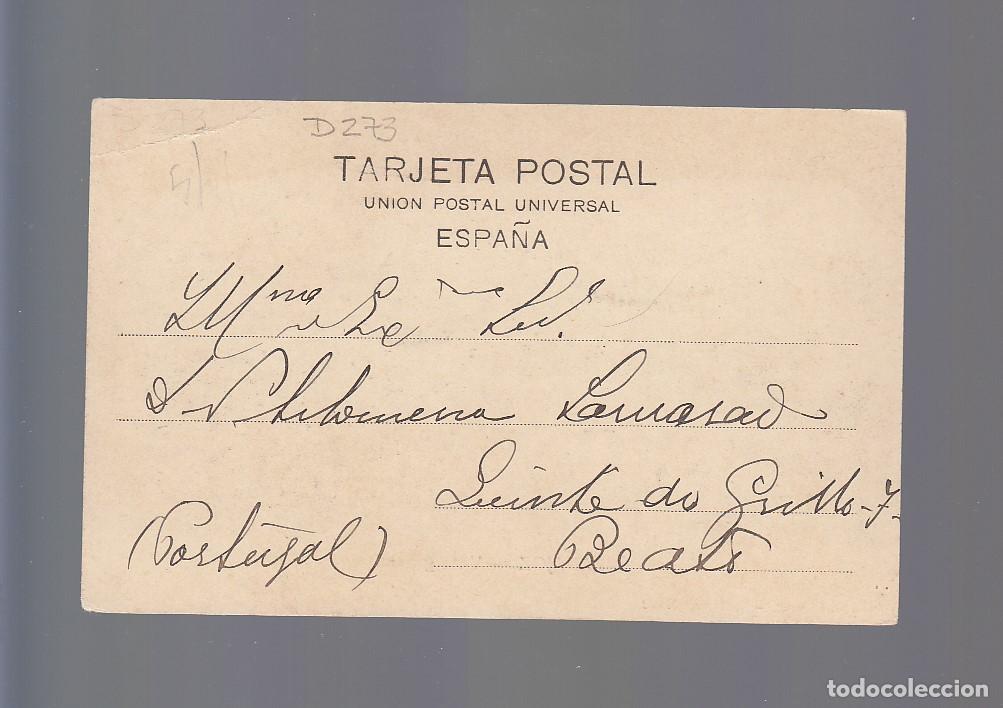 D 273
TARJETA POSTAL
UNION POSTAL UNIVERSAL
ESPAÑA
Illma Exma
Philomena
Quinta do Grillo-7-
(Portugal) Beato
todocoleccion